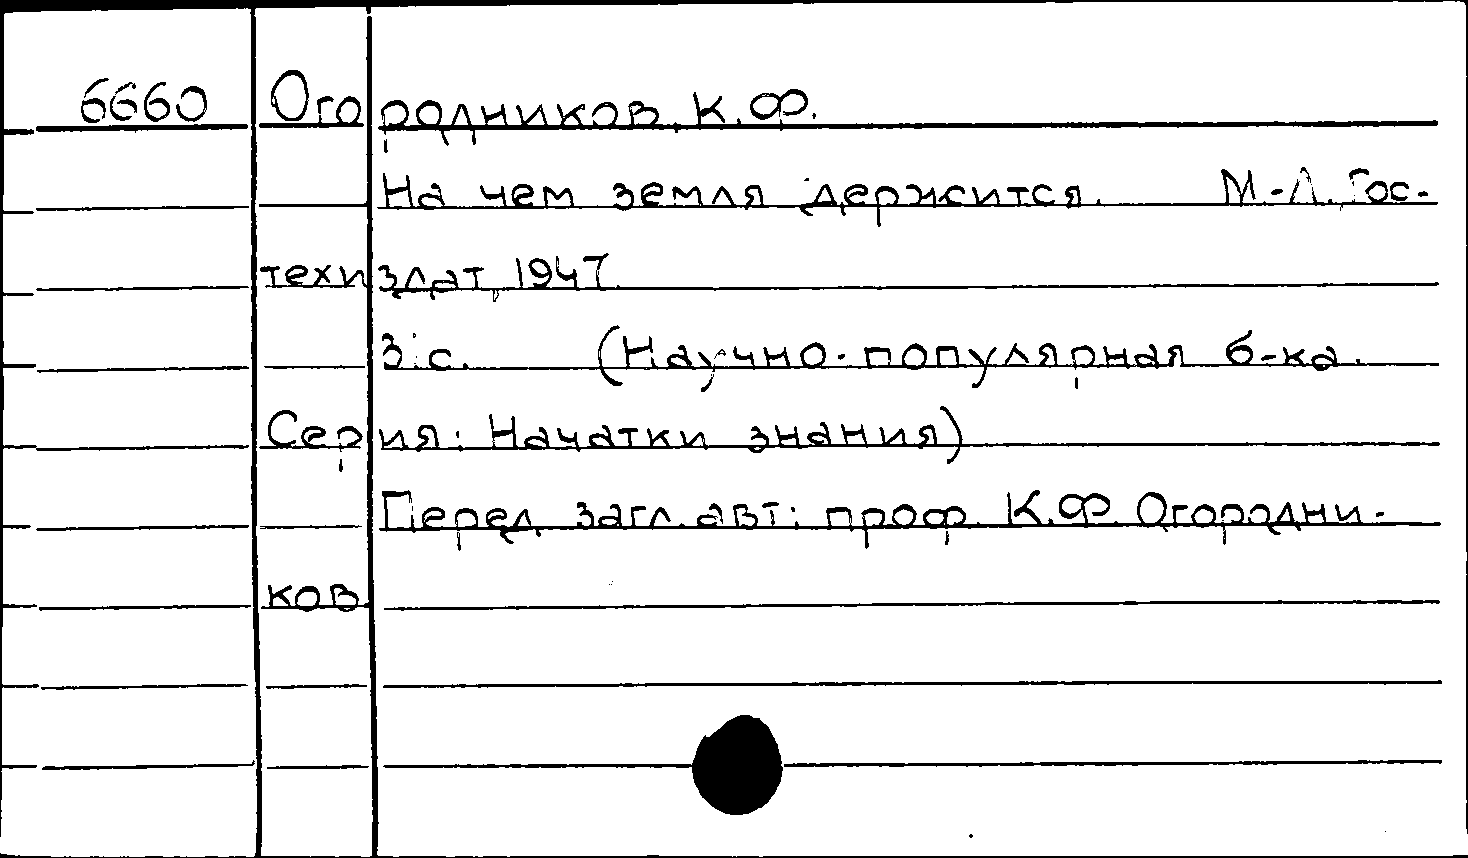 6660 Огородников, К.Ф.
На чем земля держится. М.-Л., Гос-
техиздат, 1947.
с. (Научно-популярная б-ка.
Серия: Начатки знания)
Перед загл. авт: проф. К.Ф. Огородни-
ков